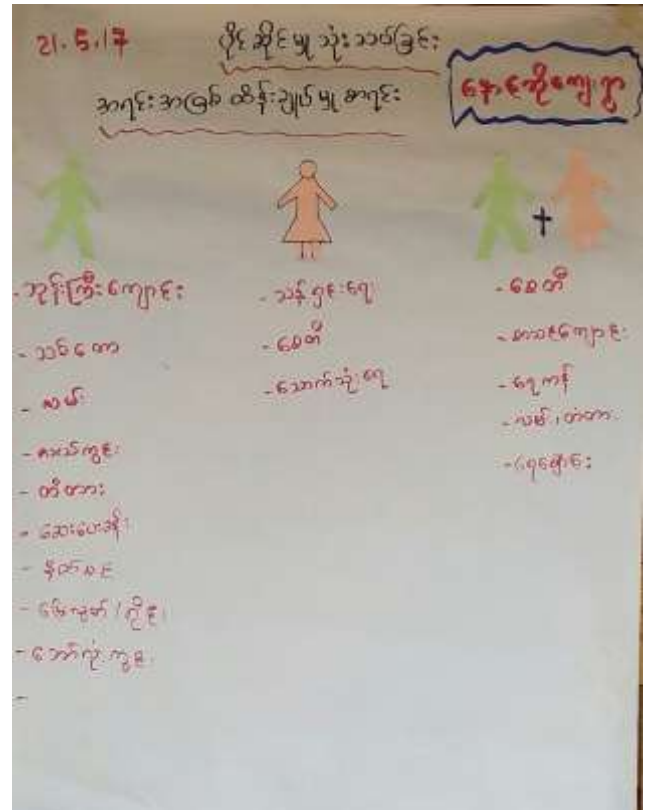 21.5.17
ပိုင်ဆိုင်မှု သုံးသပ်ခြင်း
အရင်းအမြစ် ထိန်းချုပ်မှု စာရင်း
ကျေးရွာ
- ဘုန်းကြီးကျောင်း
- သစ်တော
- လမ်း
- စားကျက်
- တံတား
- ဆေးပေးခန်း
- နတ်စင်
- ဘော်လုံးကွင်း
-
- သန့်ရှင်းရေး
- စေတီ
- သောက်သုံးရေ
+
- စေတီ
- စာသင်ကျောင်း
- ရေကန်
- လမ်း၊ တံတား
- ရေမြောင်း